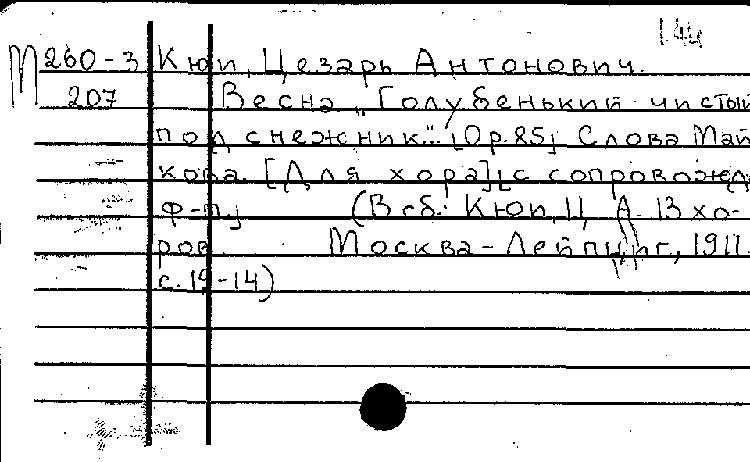 144
М 260-3 Кюи, Цезарь Антонович.
207 Весна „Голубенький чистый
подснежник..." [Op. 85] Слова Май
кова. [Для хора] [с сопровожд
ф-п.] (В сб.: Кюи, Ц. А. 13 хо-
ров. Москва-Лейпциг, 1911.
с. 19-14)